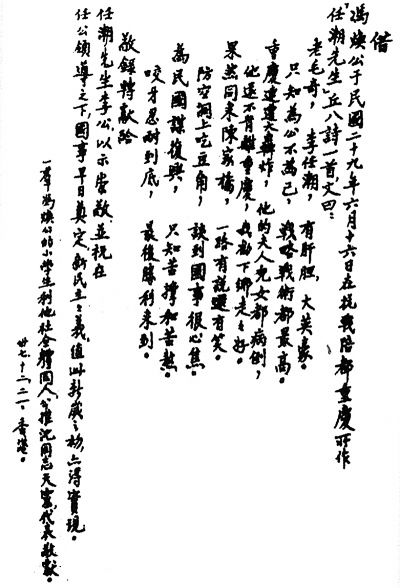 借
馮煥公于民國二十九年六月十六日在抗戰陪都重慶所作
「任潮先生」丘八詩一首，文曰：
老毛奇，李任潮，有肝胆，大英豪。
只知為公不為己，戰略戰術都最高。
重慶連遭大轟炸，他的夫人兒女都病倒；
他還不肯離重慶，我勸下鄉走走好。
果然同來陳家橋，一路有說還有笑。
防空洞上吃豆角，談到國事很心焦。
為民國謀復興，只知苦撐和苦熬。
咬牙忍耐到底，最後勝利來到。
敬錄轉獻給
任潮先生李公，以示崇敬，並祝在
任公領導之下，國事早日奠定，新民主主義，值此新歲之初，亦得實現。
一羣馮煥公的小學生利他社全體同人，公推沈同志天靈代表敬獻。
卅七、十二、二一。香港。